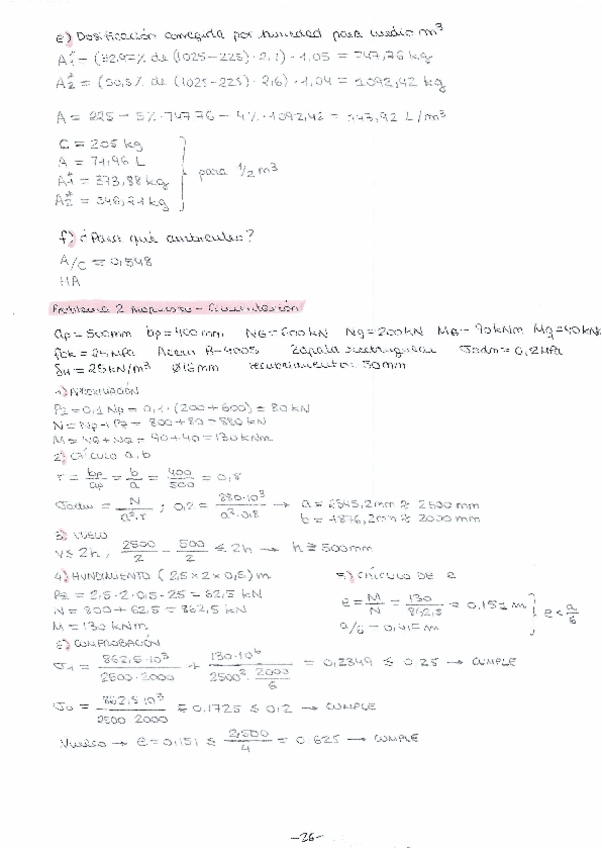 e) Dosificación corregida por humedad para medio m³
A₁* = (42,97% de (1025-225) · 2,7) · 1,05 = 747,76 kg
A₂* = (50,5% de (1025-225) · 2,6) · 1,04 = 1092,42 kg
A = 225 - 5% · 747,76 - 4% · 1092,42 = 143,92 L/m³
C = 205 kg
A = 71,96 L
A₁* = 373,88 kg
A₂* = 546,21 kg
para 1/2 m³
f) ¿Para qué ambientes?
A/C = 0,548
HA
Problema 2 - Cimentación
ap = 500mm bp = 400mm NG = 600kN NQ = 200kN MG = 90kNm MQ = 40kN
fck = 25MPa Acero B-400S Zapata rectangular σadm = 0,2MPa
γH = 25kN/m³ Ø16mm recubrimiento: 50mm
1) APROXIMACIÓN
Pz = 0,1 Np = 0,1 · (200+600) = 80 kN
N = Np + Pz = 800 + 80 = 880 kN
M = MG + MQ = 90 + 40 = 130 kNm
2) CÁLCULO a, b
r = bp/ap = b/a = 400/500 = 0,8
σadm = N/a²·r ; 0,2 = 880·10³/a²·0,8 → a = 2345,2mm ≈ 2500mm
b = 1876,2mm ≈ 2000mm
3) VUELO
V ≤ 2h, 2500/2 - 500/2 ≤ 2h → h ≥ 500mm
4) HUNDIMIENTO (2,5 × 2 × 0,5) m
Pz = 2,5 · 2 · 0,5 · 25 = 62,5 kN
N = 800 + 62,5 = 862,5 kN
M = 130 kNm
5) CÁLCULO DE e
e = M/N = 130/862,5 = 0,151 m
a/6 = 0,417m
e < a/6
6) COMPROBACIÓN
σ₁ = 862,5·10³/2500·2000 + 130·10⁶/2500²·2000/6 = 0,2349 ≤ 0,25 → CUMPLE
σ₀ = 862,5·10³/2500·2000 = 0,1725 ≤ 0,2 → CUMPLE
Vuelco → e = 0,151 ≤ 2,500/4 = 0,625 → CUMPLE
-26-